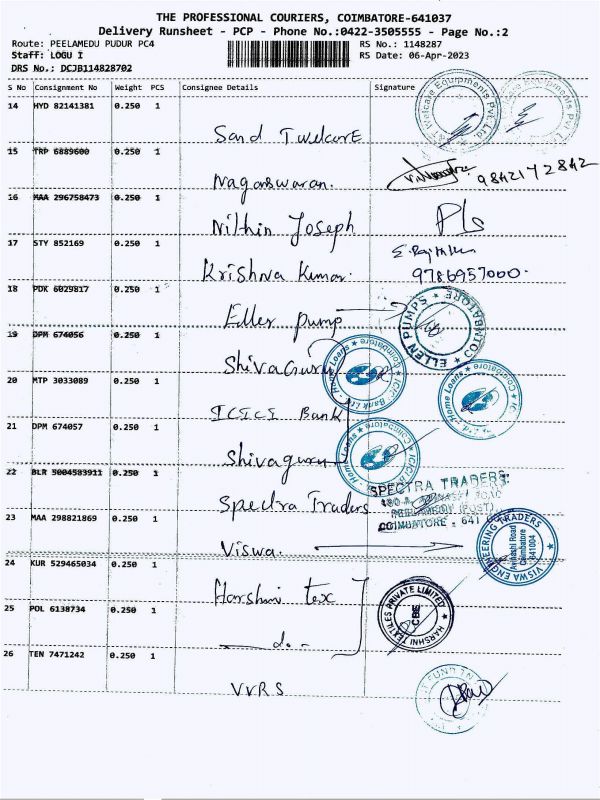 THE PROFESSIONAL COURIERS, COIMBATORE-641037
Delivery Runsheet - PCP - Phone No.:0422-3505555 - Page No.:2
Route: PEELAMEDU PUDUR PC4 RS No.: 1148287
Staff: LOGU I RS Date: 06-Apr-2023
DRS No.: DCJB114828702
S No Consignment No Weight PCS Consignee Details Signature
14 HYD 82141381 0.250 1
Sand T welcare
15 TRP 6889600 0.250 1
Nagaswaran. 9842172842
16 MAA 296758473 0.250 1
Nilthin Joseph
17 STY 852169 0.250 1
Krishna Kumar. 9786957000.
18 PDK 6029817 0.250 1
Ellen pump ELLEN PUMPS ★ COIMBATORE ★
19 DPM 674056 0.250 1
Shivaguru
20 MTP 3033089 0.250 1
ICICI Bank
21 DPM 674057 0.250 1
Shivaguru
22 BLR 5004583911 0.250 1
Spectra Traders SPECTRA TRADERS
COIMBATORE - 641
23 MAA 298821869 0.250 1
Viswa. VISWA ENGINEERING TRADERS ★ Avinashi Road Coimbatore 641004
24 KUR 529465034 0.250 1
Harshni tex
25 POL 6138734 0.250 1
do - HARSHNI TEXTILES PRIVATE LIMITED ★ CBE
26 TEN 7471242 0.250 1
VVRS